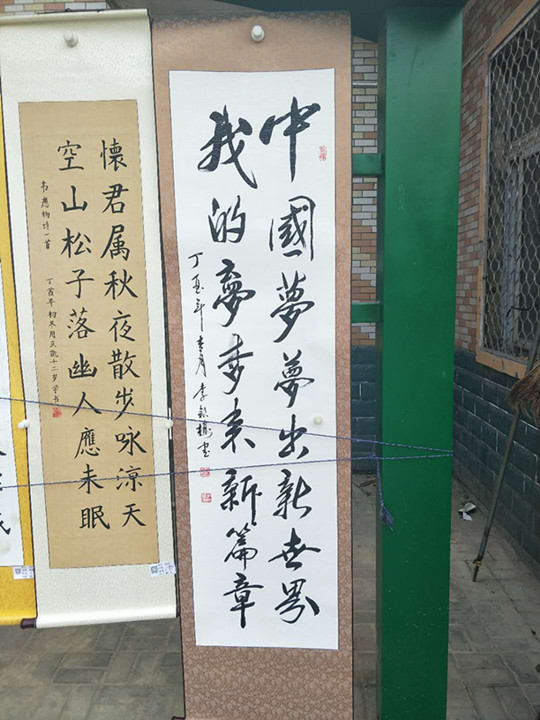 中國夢夢出新世界
我的夢梦来新篇章
丁酉年 李 書
懷君属秋夜散步咏涼天
空山松子落幽人應未眠
韦應物诗一首
丁酉年初冬周 凯十二岁学书